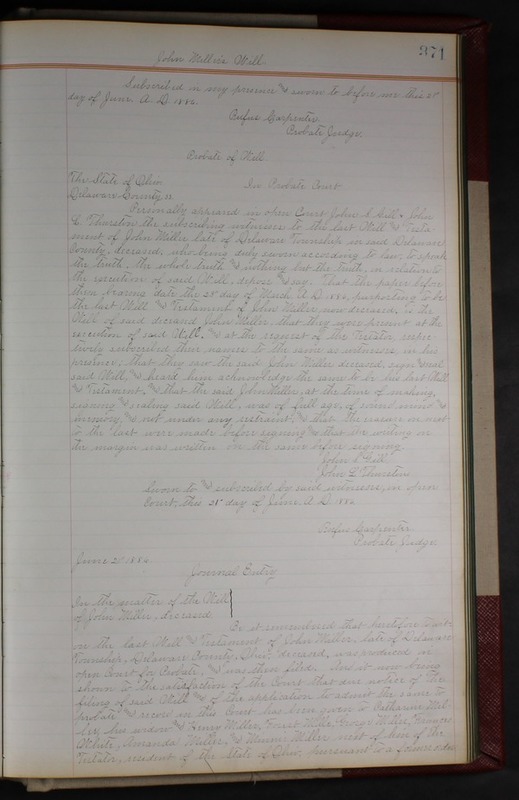 371
John Miller's Will
Subscribed in my presence and sworn to before me this 21
day of June A. D. 1886.
Rufus Carpenter
Probate Judge.
Probate of Will
The State of Ohio In Probate Court
Delaware County, ss
Personally appeared in open Court John S. Gill & John
C. Thurston the subscribing witnesses to the last Will and Testa-
ment of John Miller late of Delaware Township in said Delaware
County, deceased, who being duly sworn according to law, to speak
the truth, the whole truth and nothing but the truth, in relation to
the execution of said Will, depose and say, That the paper before
them bearing date the day of March A. D. 1886, purporting to be
the last Will and Testament of John Miller now deceased, is the
Will of said deceased John Miller, that they were present at the
execution of said Will, and at the request of the Testator respec-
tively subscribed their names to the same as witnesses in his
presence; that they saw the said John Miller deceased, sign and seal
said Will, and heard him acknowledge the same to be his last Will
and Testament, and that the said John Miller, at the time of making,
signing and sealing said Will, was of full age, of sound mind and
memory, and not under any restraint, and that the on next
to the last were made before signing and that the writing in
the margin was written on the same before signing.
John S. Gill
John C. Thurston
Sworn to and subscribed by said witnesses, in open
Court, this 21st day of June A. D. 1886
Rufus Carpenter
Probate Judge.
June 21 1886
Journal Entry
In the matter of the Will
of John Miller, deceased
Be it remembered that heretofore to wit:
on the last Will and Testament of John Miller, late of Delaware
Township, Delaware County, Ohio, deceased, was produced in
open Court for Probate, and was then filed. And it now being
shown to the satisfaction of the Court that due notice of the
filing of said Will and of the application to admit the same to
probate and record in this Court has been given to Catharine Mil-
ler, his widow and Henry Miller, Miller, George Miller, Frances
White, Amanda Miller, and Miller next of kin of the
Testator, resident of the State of Ohio, pursuant to a former order